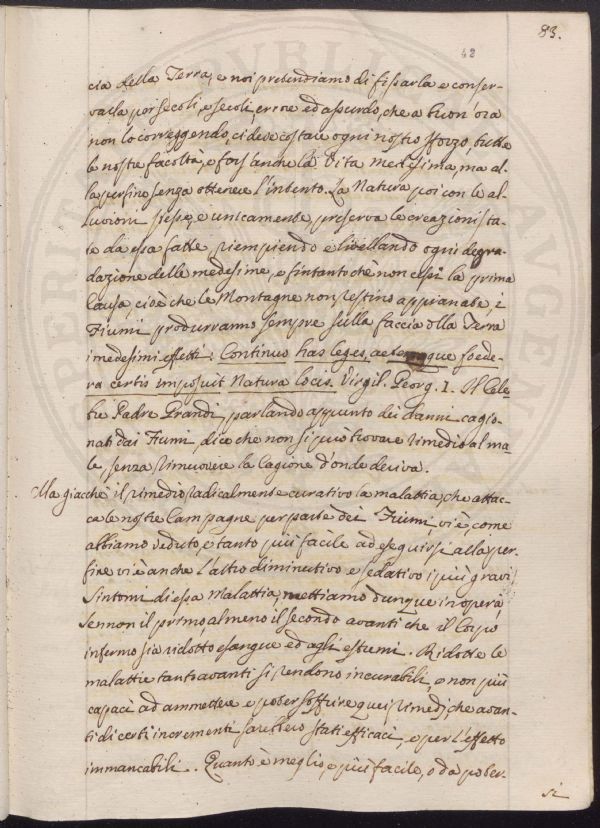 83.
42
cia della Terra, e noi pretendiamo di fissarla e conser-
varla per secoli, e secoli, errore ed assurdo, che a buon'ora
non lo correggendo, ci deve costare ogni nostro sforzo, tutte
le nostre facoltà, e fors'anche la Vita medesima, ma al-
la perfine senza ottenere l'intento. La Natura poi con le al-
luvioni spesse, e unicamente preserva le creazioni sta-
te da essa fatte, riempiendo e livellando ogni degra-
dazione delle medesime, e fintanto chè non cessi la prima
Causa, cioè che le Montagne non restino appianate, i
Fiumi produrranno sempre sulla faccia della Terra
i medesimi effetti: Continuo has leges, aeternaque foede-
ra certis imposuit Natura locis. Virgil. Georg. I. Il Cele-
bre Padre Grandi, parlando appunto dei danni cagio-
nati dai Fiumi, dice che non si può trovare rimedio al ma-
le, senza rimuovere la Cagione d'onde deriva.
Ma giacchè il rimedio radicalmente curativo la malattia, che attac-
ca le nostre Campagne per parte dei Fiumi, vi è, come
abbiamo veduto, e tanto più facile ad eseguirsi, alla per-
fine vi è anche l'altro diminutivo e sedativo i più gravi
Sintomi di essa Malattia, mettiamo dunque in opera,
se non il primo, almeno il secondo avanti che il Corpo
infermo sia ridotto esangue ed agli estremi. Ridotte le
malattie tant'avanti si rendono incurabili, e non più
capaci ad ammettere e poter soffrire quei rimedj, che avan-
ti di certi incrementi sarebbero stati efficaci, e per l'effetto
immancabili. Quanto è meglio, e più facile, o da poter-
si